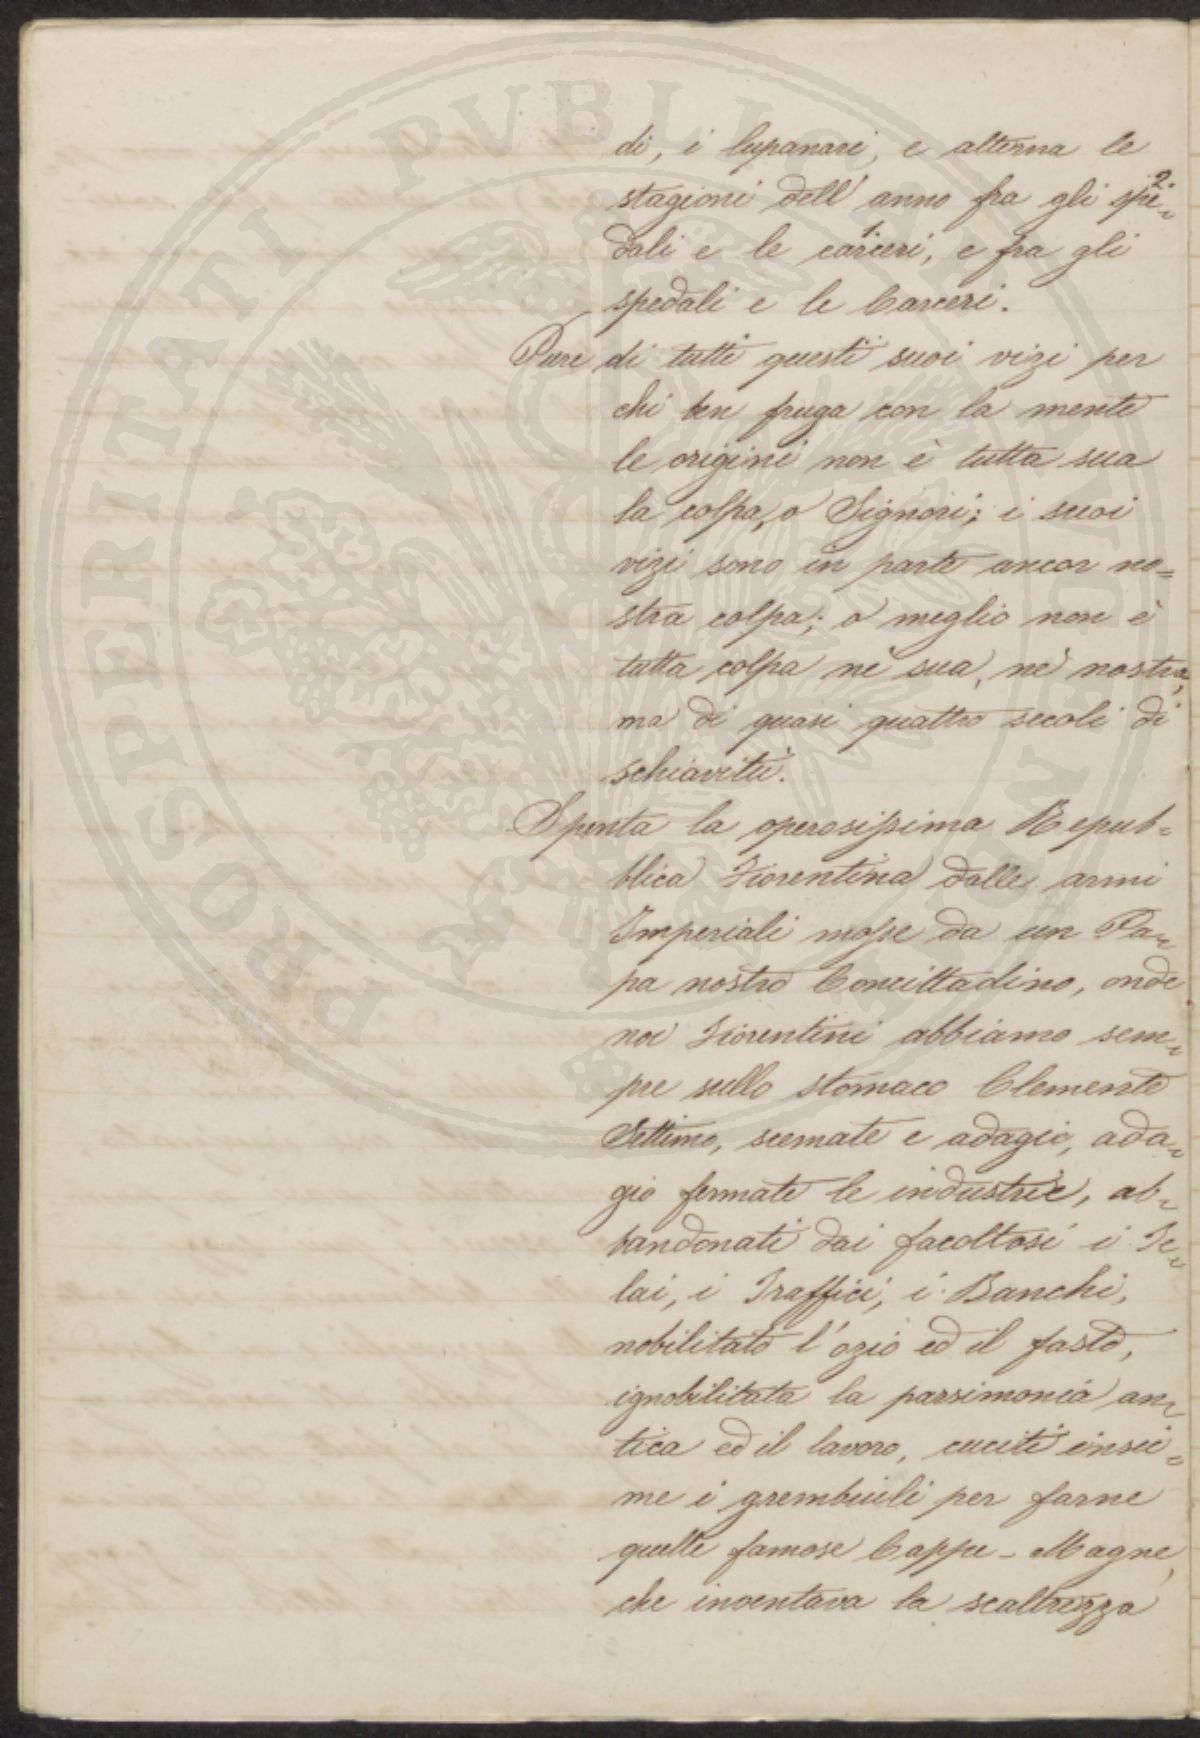 di, i lupanari, e alterna le
stagioni dell'anno fra gli spe=
dali e le carceri, e fra gli
spedali e le Carceri.
Pure di tutti questi suoi vizi per
chi ben fruga con la mente
le origini non è tutta sua
la colpa, o Signori; i suoi
vizi sono in parte ancor no=
stra colpa; o meglio non è
tutta colpa nè sua, nè nostra,
ma di quasi quattro secoli di
schiavitù.
Spenta la operosissima Repub=
blica Fiorentina dalle armi
Imperiali mosse da un Pa=
pa nostro Concittadino, onde
noi Fiorentini abbiamo sem=
pre sullo stomaco Clemente
Settimo, scemate e adagio, ada=
gio fermate le industrie, ab=
bandonati dai facoltosi i Te=
lai, i Traffici, i Banchi,
nobilitato l'ozio ed il fasto,
ignobilitata la parsimonia an=
tica ed il lavoro, cuciti insie=
me i grembiuli per farne
quelle famose Cappe-Magne,
che inventava la scaltrezza
PROSPERITATI PVBLICAE